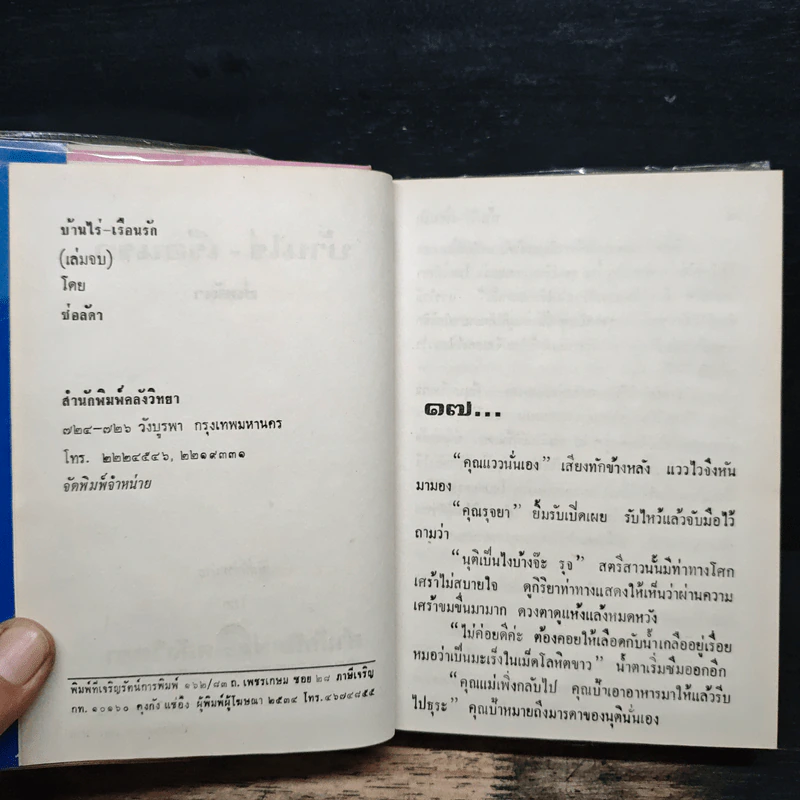 บ้านไร่-เรือนรัก
(เล่มจบ)
โดย
ช่อลัดา
สำนักพิมพ์คลังวิทยา
๗๒๔–๗๒๖ วังบูรพา กรุงเทพมหานคร
โทร. ๒๒๒๔๕๔๖, ๒๒๑๙๓๓๑
จัดพิมพ์จำหน่าย
พิมพ์ที่เจริญรัตน์การพิมพ์ ๑๖๒/๘๓ ถ. เพชรเกษม ซอย ๒๘ ภาษีเจริญ
กท. ๑๐๑๖๐ คุงกัง แซ่อึง ผู้พิมพ์ผู้โฆษณา ๒๕๓๔ โทร. ๔๖๗๔๘๕๕
๑๗...
“คุณแววนั่นเอง” เสียงทักข้างหลัง แววไวจึงหัน
มามอง
“คุณรุจยา” ยิ้มรับเปิดเผย รับไหว้แล้วจับมือไว้
ถามว่า
“นุติเป็นไงบ้างจ๊ะ รุจ” สตรีสาวนั้นมีท่าทางโศก
เศร้าไม่สบายใจ ดูกิริยาท่าทางแสดงให้เห็นว่าผ่านความ
เศร้าขมขื่นมามาก ดวงตาดูแห้งแล้งหมดหวัง
“ไม่ค่อยดีค่ะ ต้องคอยให้เลือดกับน้ำเกลืออยู่เรื่อย
หมอว่าเป็นมะเร็งในเม็ดโลหิตขาว” น้ำตาเริ่มซึมออกอีก
“คุณแม่เพิ่งกลับไป คุณเป้าเอาอาหารมาให้แล้วรีบ
ไปธุระ” คุณเป้าหมายถึงมารดาของนุตินั่นเอง